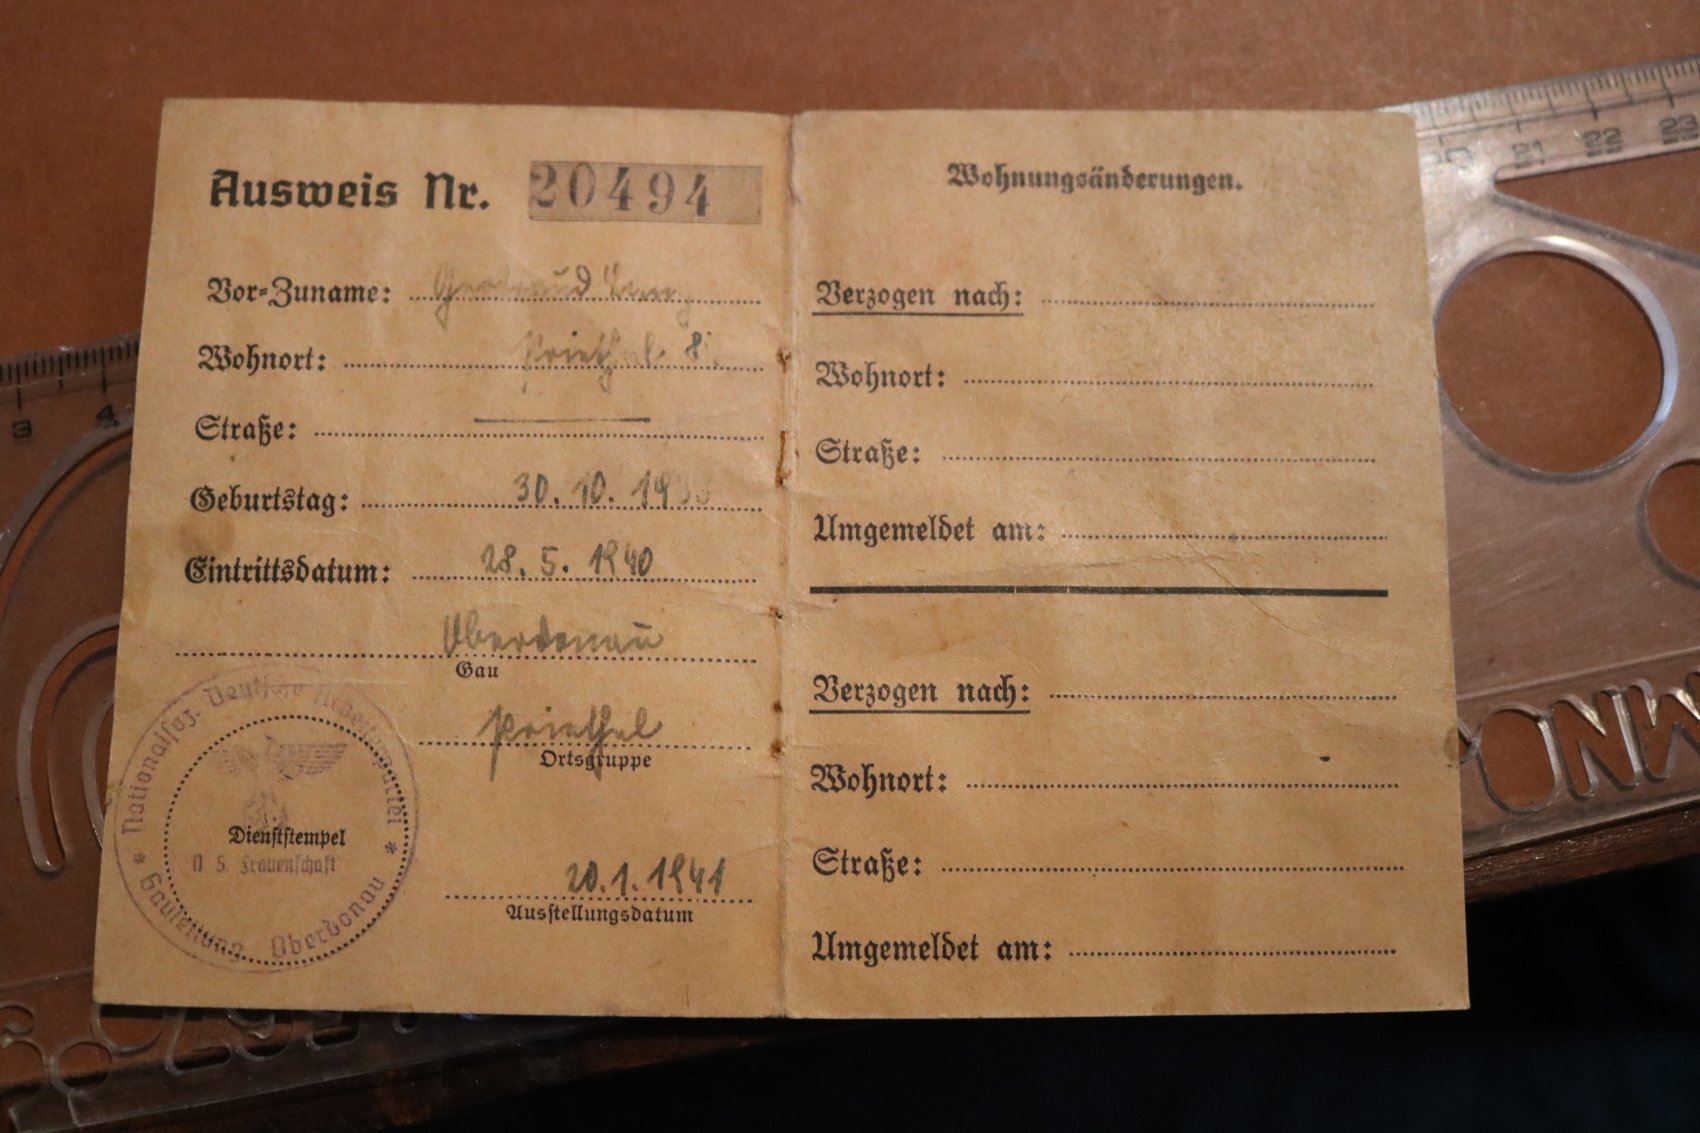 Ausweis Nr. 20494
Vor=Zuname: Gertraud
Wohnort: Priethal 8
Straße:
Geburtstag: 30. 10. 19
Eintrittsdatum: 28. 5. 1940
Oberdonau
Gau
Priethal
Ortsgruppe
Nationalsoz. Deutsche Arbeiterpartei
Dienststempel
N S. Frauenschaft
* Gauleitung Oberdonau *
20. 1. 1941
Ausstellungsdatum
Wohnungsänderungen.
Verzogen nach:
Wohnort:
Straße:
Umgemeldet am:
Verzogen nach:
Wohnort:
Straße:
Umgemeldet am:
3 4
20 21 22 23